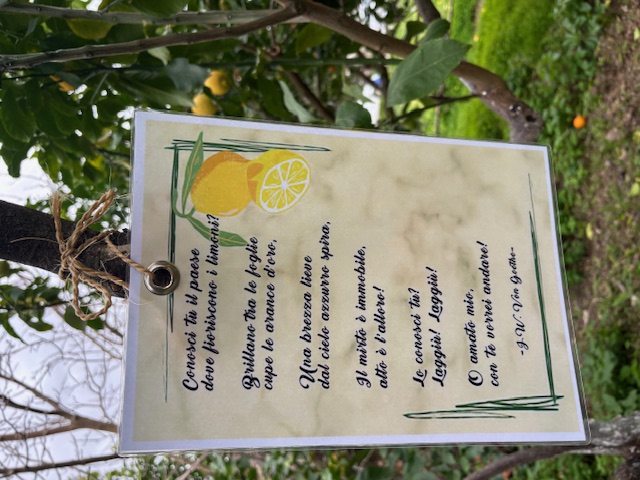 Conosci tu il paese
dove fioriscono i limoni?
Brillano tra le foglie
cupe le arance d'oro,
Una brezza lieve
dal cielo azzurro spira,
Il mirto è immobile,
alto è l'alloro!
Lo conosci tu?
Laggiù! Laggiù!
O amato mio,
con te vorrei andare!
-J.W. Von Goethe-